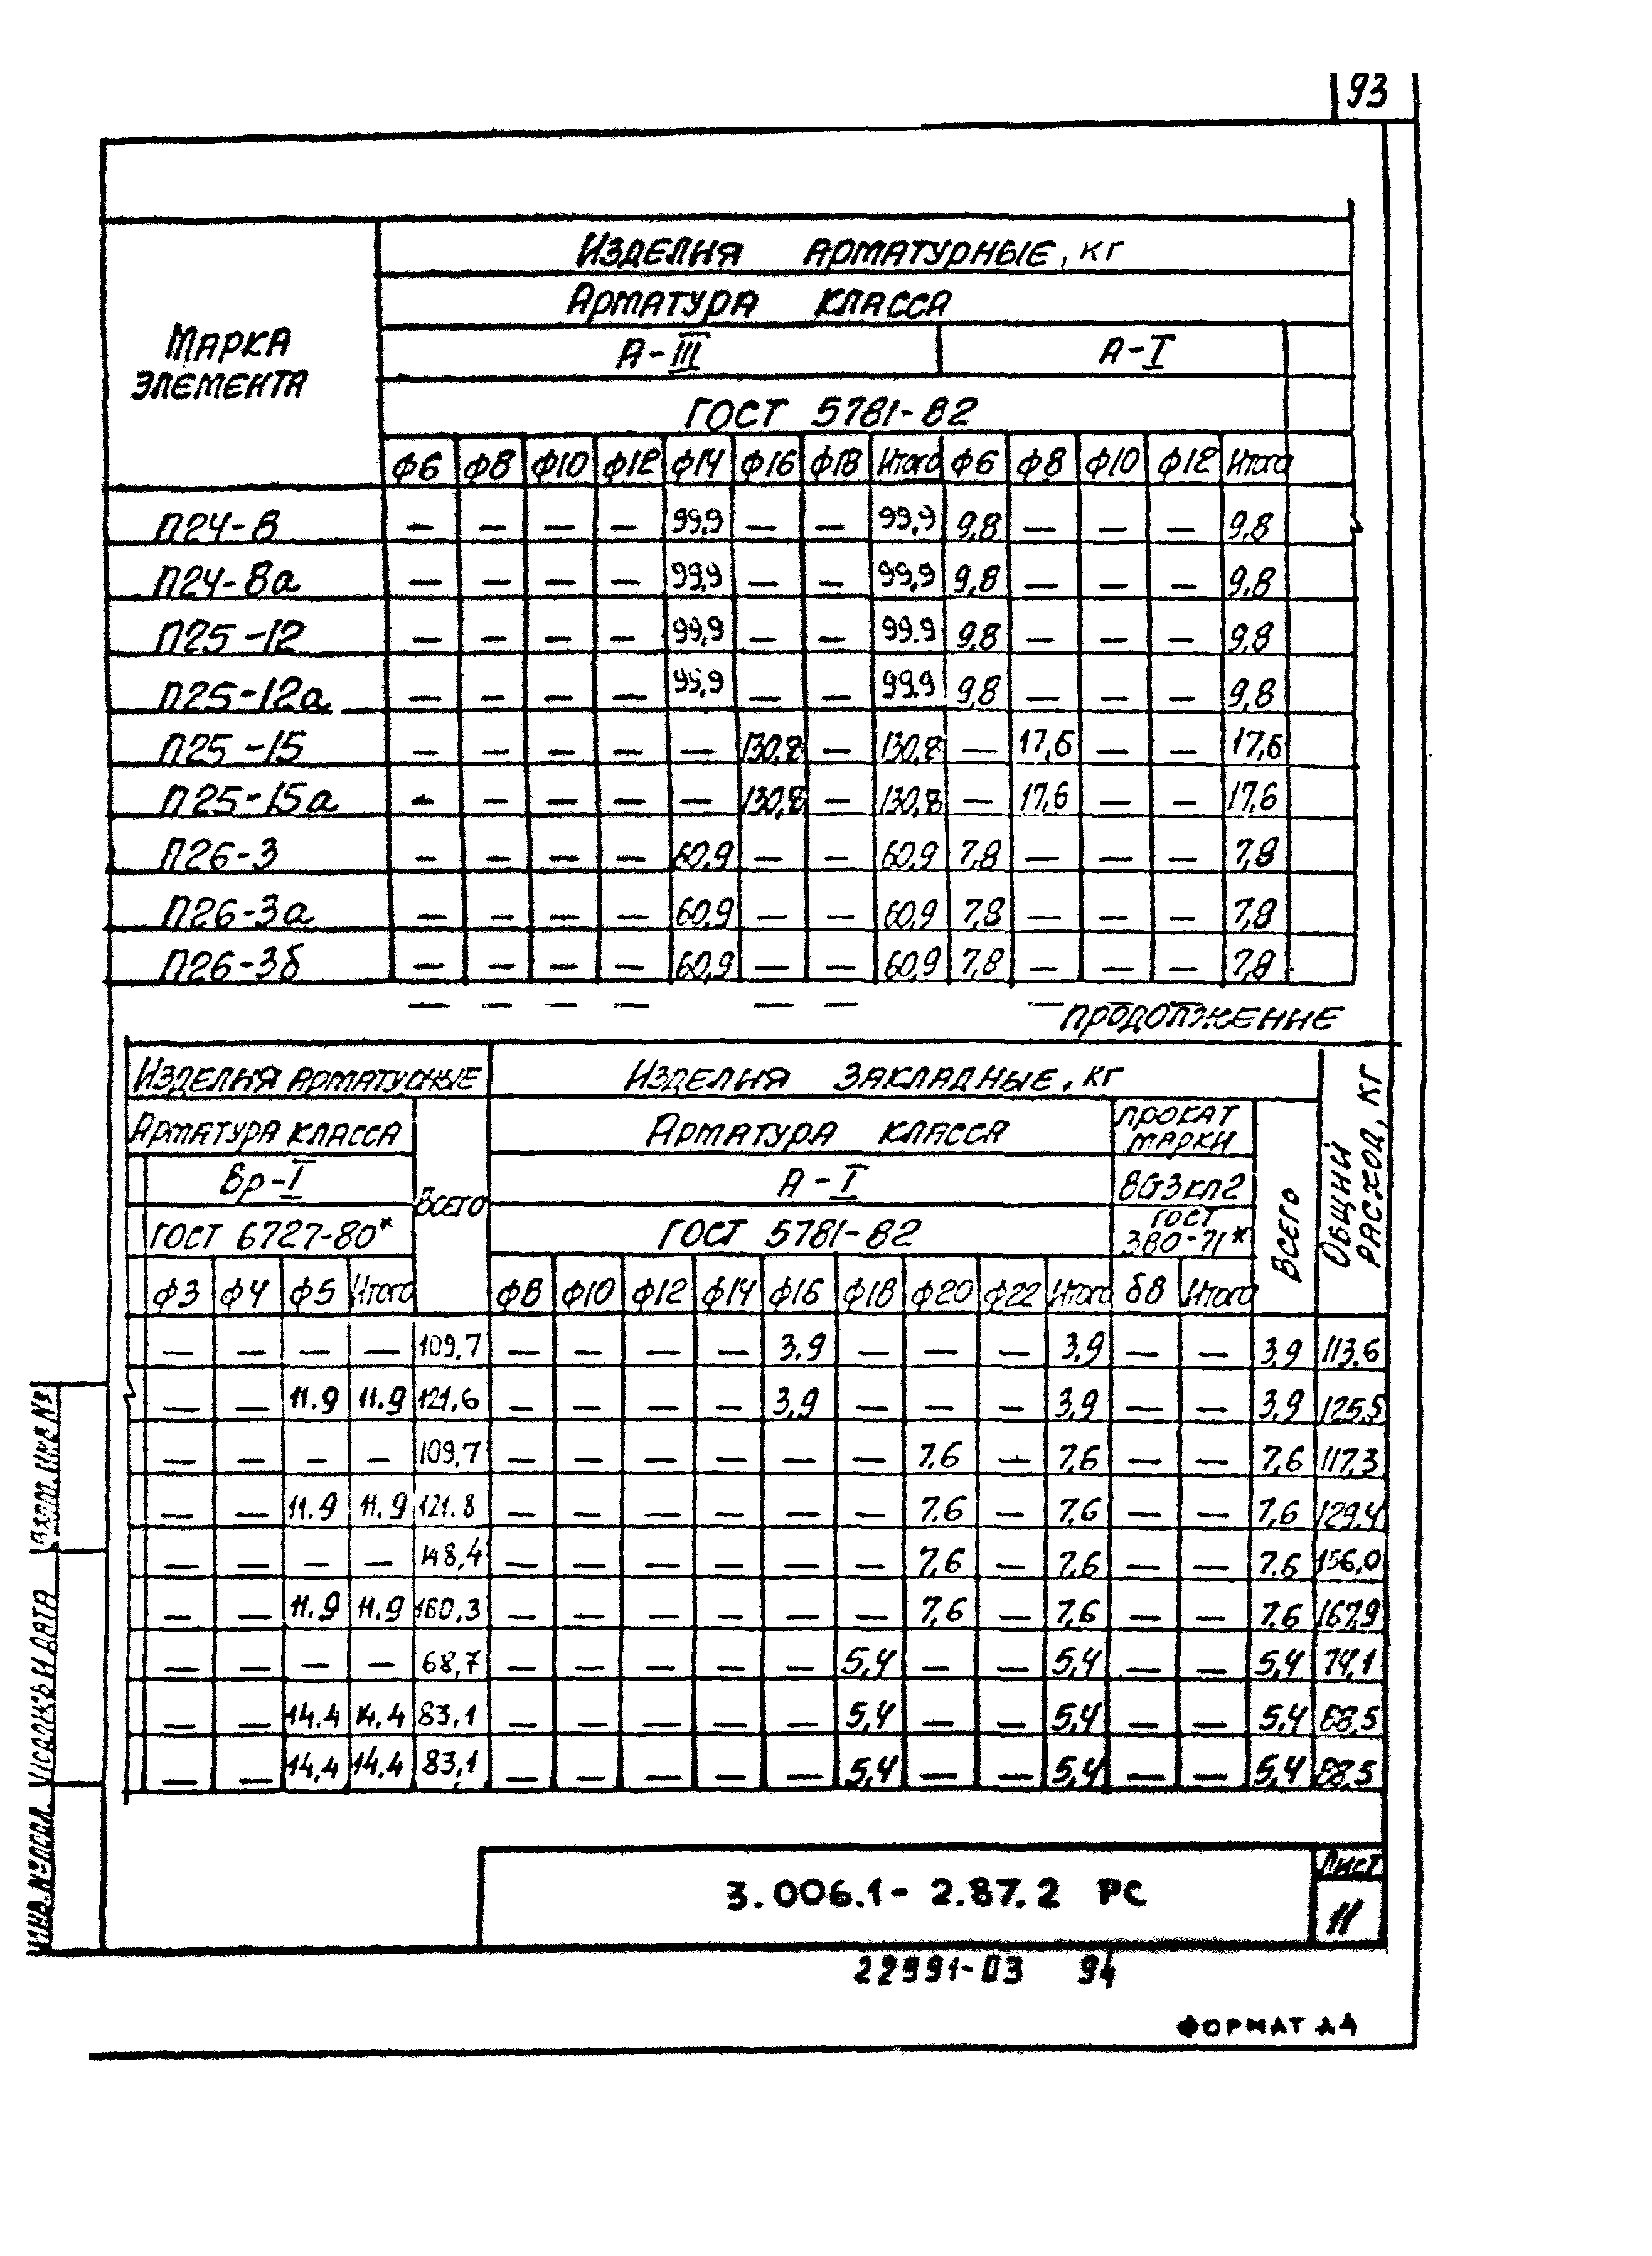 93
Изделия арматурные, кг
Арматура класса
Марка элемента
А-III А-I
ГОСТ 5781-82
ф6 ф8 ф10 ф12 ф14 ф16 ф18 Итого ф6 ф8 ф10 ф12 Итого
П24-8 — — — — 99,9 — — 99,9 9,8 — — — 9,8
П24-8а — — — — 99,9 — — 99,9 9,8 — — — 9,8
П25-12 — — — — 99,9 — — 99.9 9,8 — — — 9,8
П25-12а — — — — 99,9 — — 99.9 9,8 — — — 9,8
П25-15 — — — — — 130,8 — 130,8 — 17,6 — — 17,6
П25-15а — — — — — 130,8 — 130,8 — 17,6 — — 17,6
П26-3 — — — — 60,9 — — 60,9 7,8 — — — 7,8
П26-3а — — — — 60,9 — — 60,9 7,8 — — — 7,8
П26-3б — — — — 60,9 — — 60,9 7,8 — — — 7,8
продолжение
Изделия арматурные Изделия закладные, кг Общий расход, кг
Арматура класса Всего Арматура класса прокат марки Всего
Вр-I А-I ВСт3кп2
ГОСТ 6727-80* ГОСТ 5781-82 ГОСТ 380-71*
ф3 ф4 ф5 Итого ф8 ф10 ф12 ф14 ф16 ф18 ф20 ф22 Итого δ8 Итого
— — — — 109.7 — — — — 3.9 — — — 3.9 — — 3.9 113.6
— — 11.9 11.9 121.6 — — — — 3,9 — — — 3,9 — — 3,9 125,5
— — — — 109,7 — — — — — — 7.6 — 7,6 — — 7,6 117,3
— — 11.9 11.9 121.8 — — — — — — 7,6 — 7,6 — — 7,6 129,4
— — — — 148,4 — — — — — — 7,6 — 7,6 — — 7,6 156,0
— — 11.9 11.9 160,3 — — — — — — 7,6 — 7,6 — — 7,6 167,9
— — — — 68,7 — — — — — 5,4 — — 5,4 — — 5,4 74,1
— — 14.4 14.4 83,1 — — — — — 5,4 — — 5,4 — — 5,4 88,5
— — 14,4 14,4 83,1 — — — — — 5,4 — — 5,4 — — 5,4 88,5
Взам. инв. №
Подпись и дата
Инв. № подл.
3.006.1-2.87.2 РС
Лист
11
22991-03 94
Формат А4